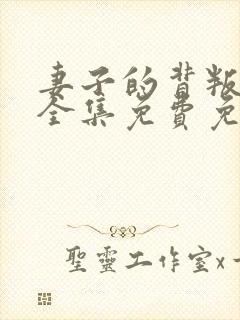 妻子的背叛
全集免费免
聖靈工作室x